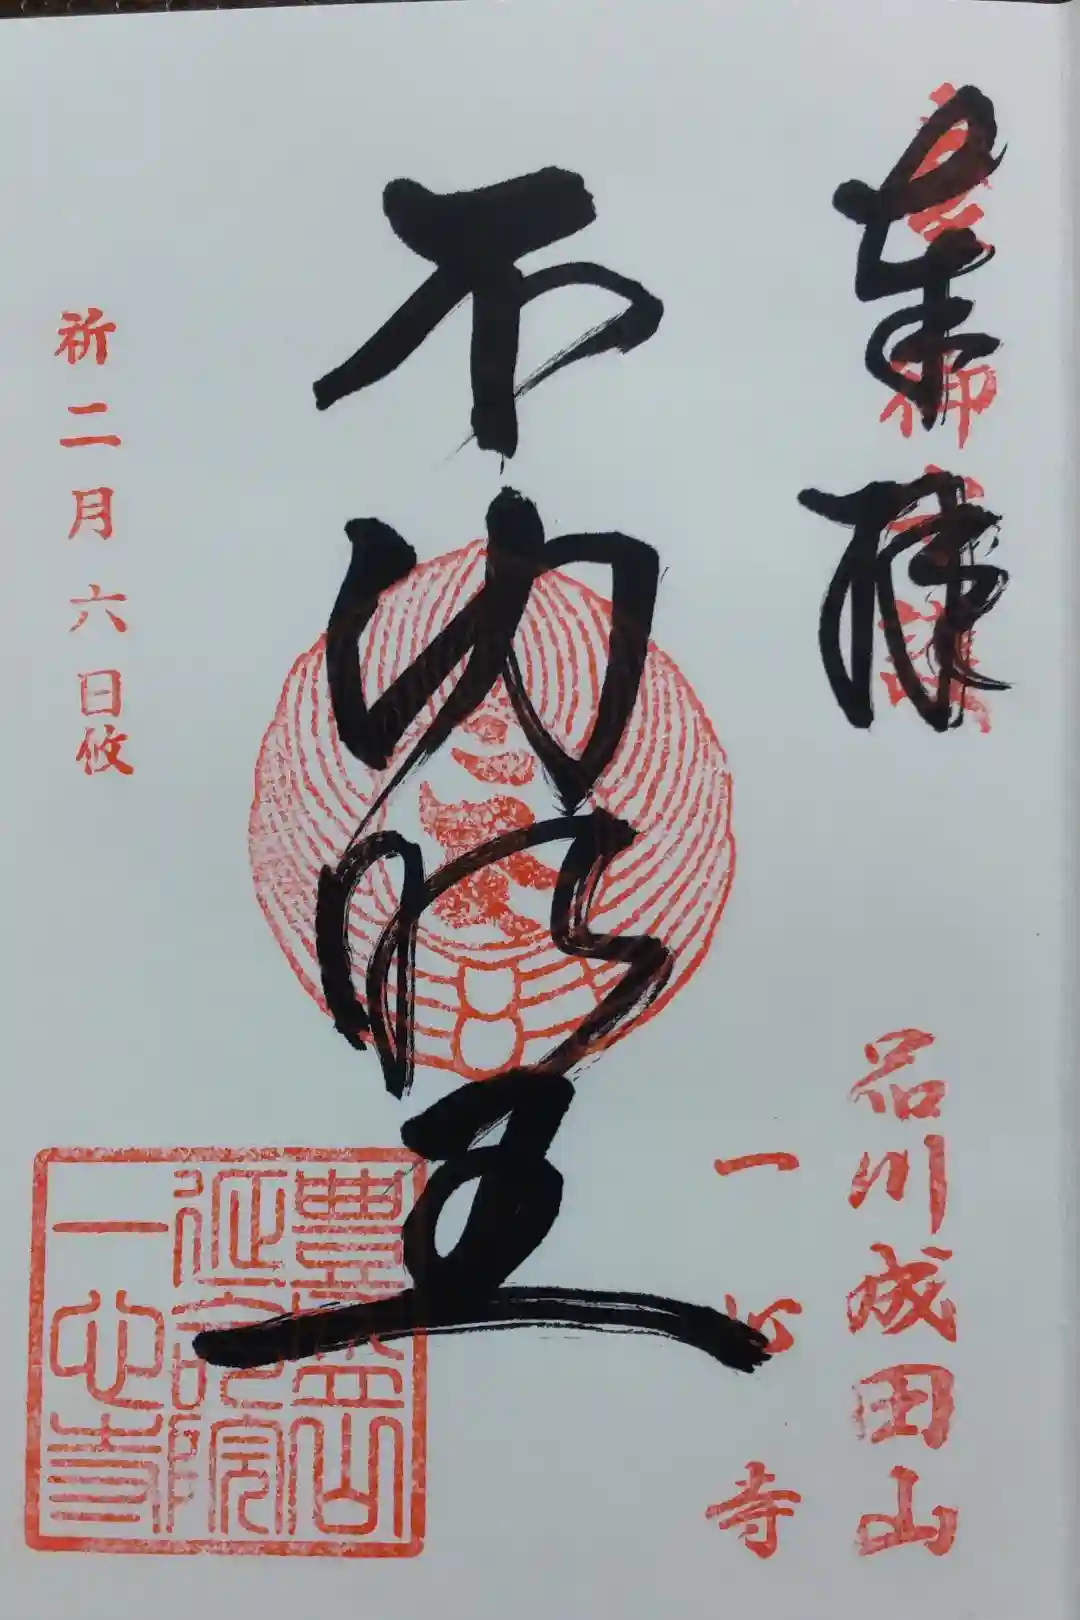 奉拝
品川成田山
一心寺
不動明王
豊盛山
延命院
一心寺
祈二月六日攸